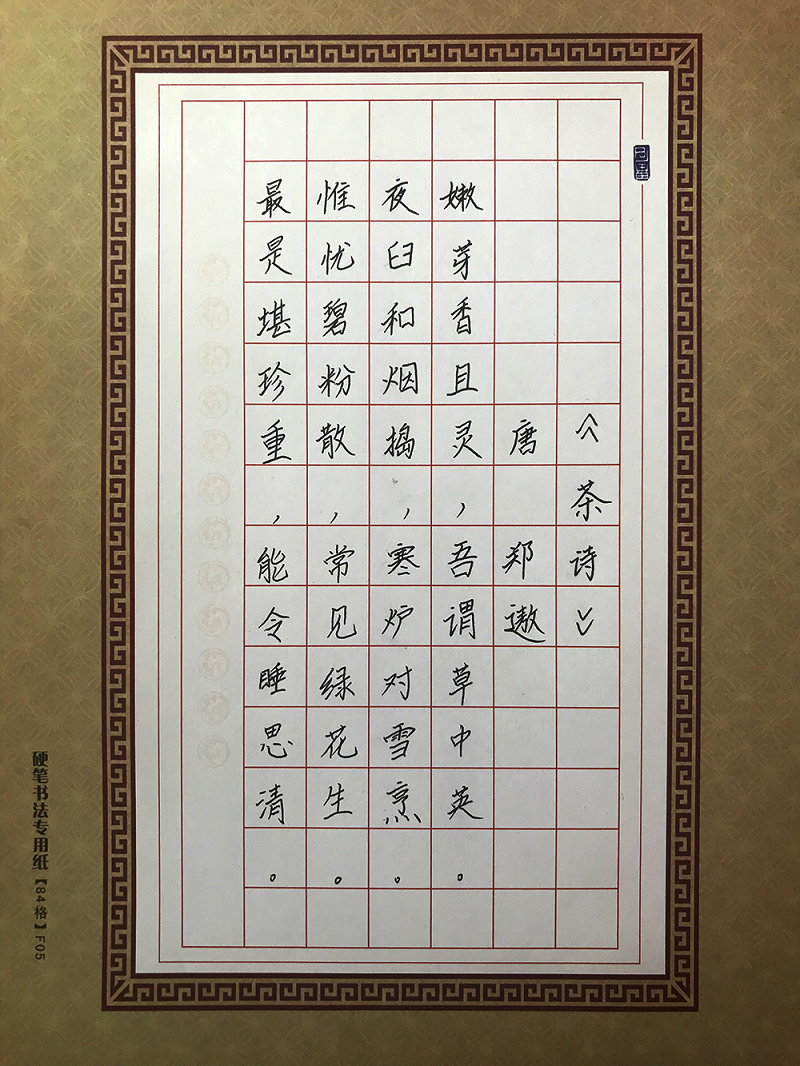 《茶诗》
唐 郑遨
嫩芽香且灵,吾谓草中英。
夜臼和烟捣,寒炉对雪烹。
惟忧碧粉散,常见绿花生。
最是堪珍重,能令睡思清。
硬笔书法专用纸【84格】F05